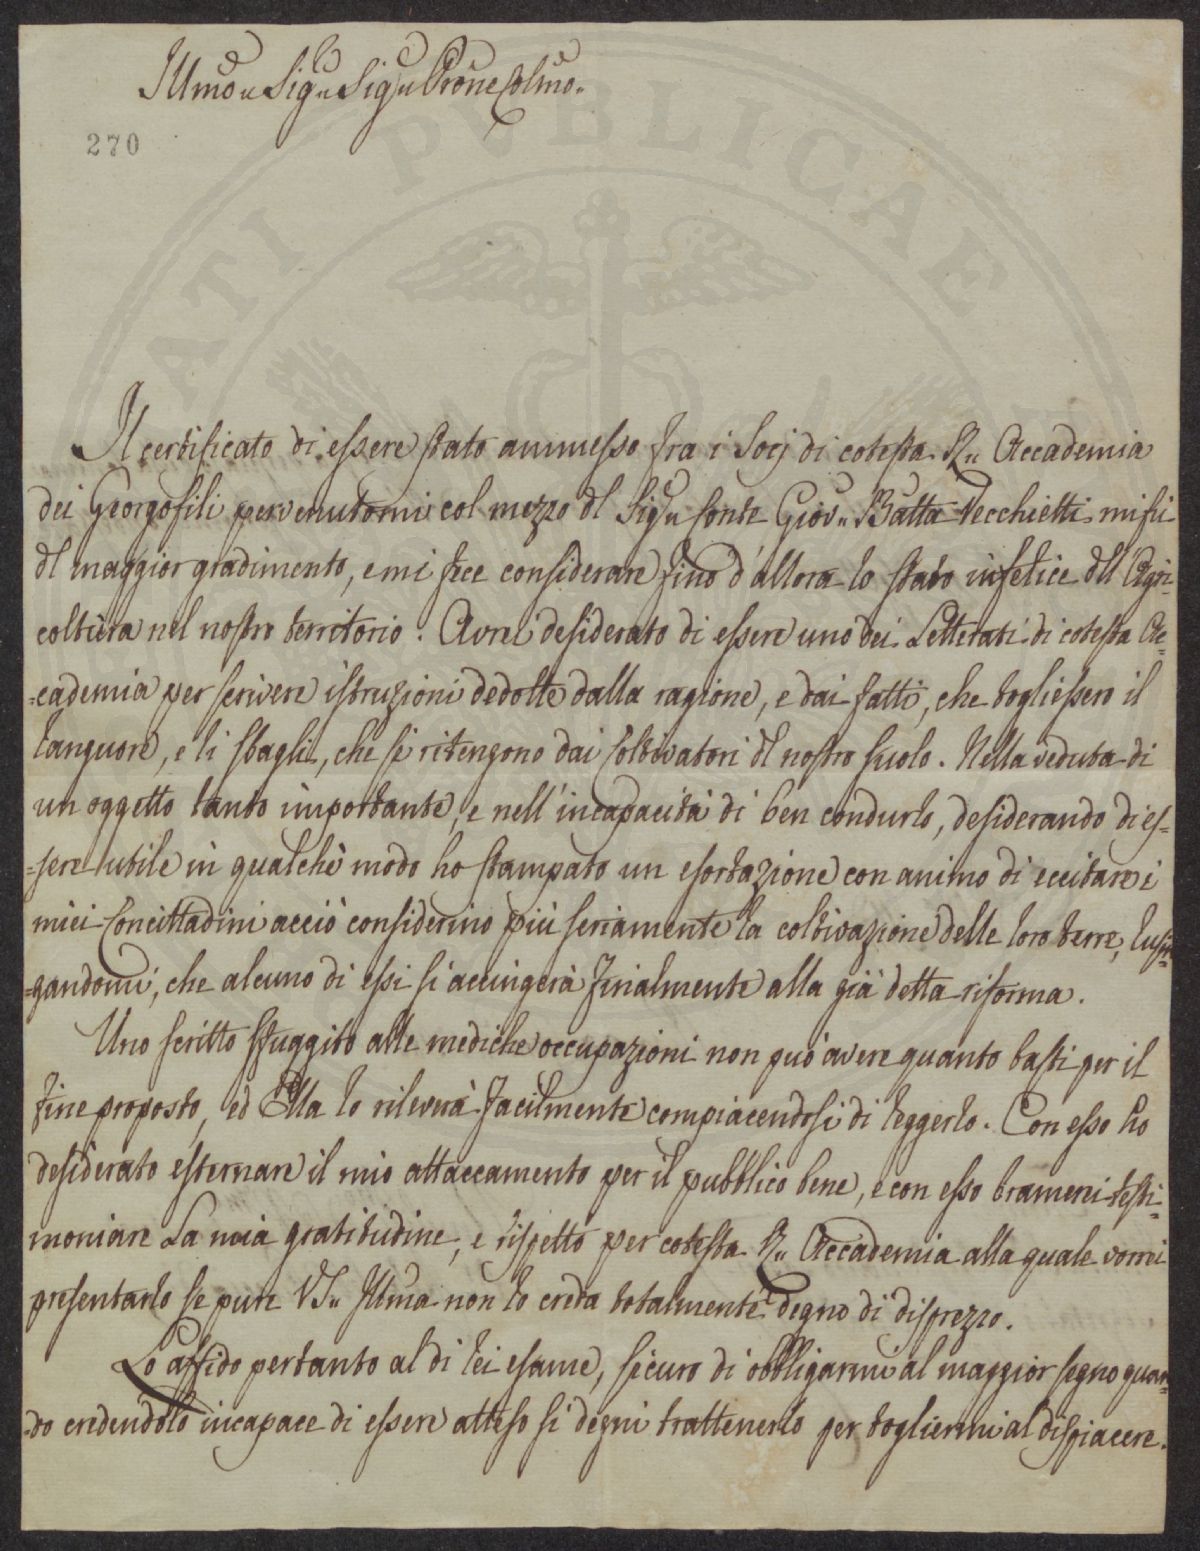 Illmo Sig. Sig. Prone Colmo.
270
Il certificato di essere stato ammesso fra i Socj di cotesta R. Accademia
dei Georgofili pervenutomi col mezzo dl Sig. Conte Giov. Batta Vecchietti mi fu
dl maggior gradimento, e mi fece considerare fino d'allora lo stato infelice dll'Agri-
coltura nel nostro territorio. Avrei desiderato di essere uno dei Letterati di cotesta Ac=
=cademia per scrivere istruzioni dedotte dalla ragione, e dai fatti, che togliessero il
languore, e li sbagli, che si ritengono dai Coltivatori dl nostro suolo. Nella veduta di
un oggetto tanto importante, e nell'incapacità di ben condurlo, desiderando di es=
=sere utile in qualche modo ho stampato un esortazione con animo di eccitare i
miei Concittadini acciò considerino più seriamente la coltivazione delle loro terre, lusin=
=gandomi, che alcuno di essi si accingerà finalmente alla già detta riforma.
Uno scritto sfuggito alle mediche occupazioni non può avere quanto basti per il
fine proposto, ed Ella lo rileverà facilmente compiacendosi di leggerlo. Con esso ho
desiderato esternare il mio attaccamento per il pubblico bene, e con esso bramerei testi=
moniare La mia gratitudine, e rispetto per cotesta R. Accademia alla quale vorrei
presentarlo se pure VS. Illma non lo creda totalmente degno di disprezzo.
Lo affido pertanto al di lei esame, sicuro di obbligarmi al maggior segno quan=
=do credendolo incapace di essere atteso si degni trattenerlo per togliermi al dispiacere.
PUBLICAE